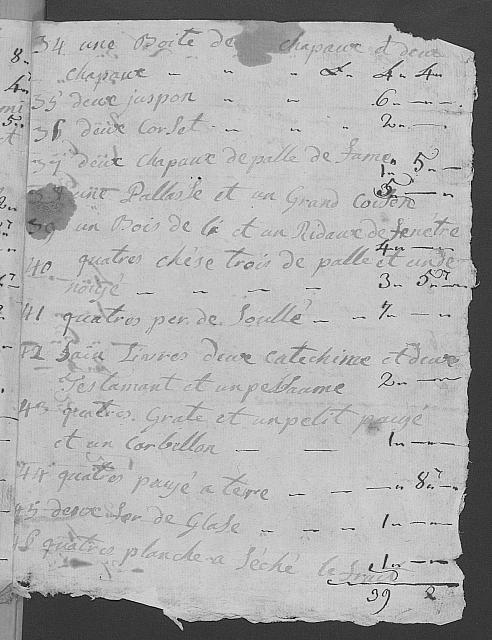 34 une Boite de chapaux et deux
chapaux " " " £ 4 " 4 "
35 deux juspon " " 6 " —
36 deux Corset " " " 2 " —
37 deux chapaux de palle de fame 1 " 5 " —
38 une Pallasse et un Grand Coisin 3 " —
39 un Bois de li et un Ridaux de fenétre
4 " —
40 quatres chése trois de palle et une de
noixe — — — — — 3 " 5 " —
41 quatres per de Soullé " — " 7 " —
42 Livres deux catechime et deux
Testamant et un pessaume 2 " —
43 quatres Grate et un petit paujé
et un Corbillon — — 1 " —
44 quatres paujé a terre " — — " 8 " —
45 deux de Glase " " " " 1 " —
quatres planche a Séché le fruit 1 " —
39 2